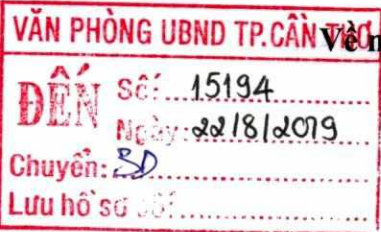 VĂN PHÒNG UBND TP.CẦN THƠ
Về n
ĐẾN
Số: 15194
Ngày: 22/8/2019
Chuyển: SD
Lưu hồ sơ số: